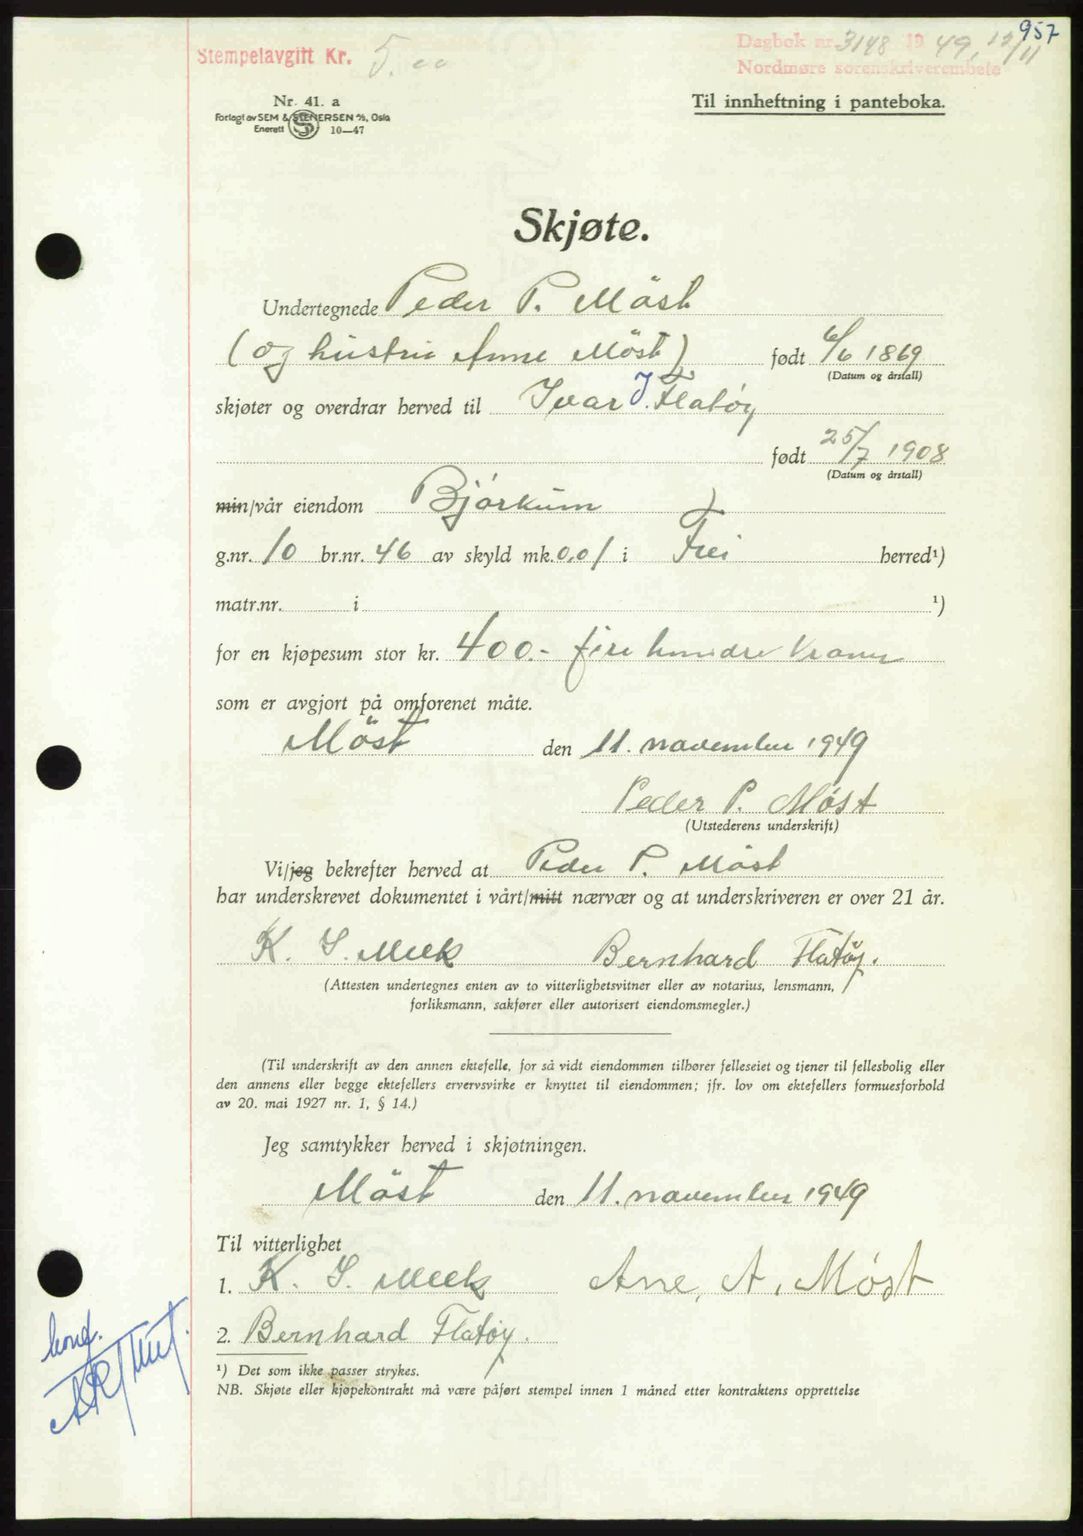 957
Stempelavgift Kr. 5.00
Dagbok nr. 3148 1949, 12/11
Nordmøre sorenskriverembete
Nr. 41. a
Forlagt av SEM & STENERSEN A/S, Oslo
Enerett 10—47
Til innheftning i panteboka.
Skjøte.
Undertegnede Peder P. Möst
(og hustru Anne Möst) født 6/6 1869
(Datum og årstall)
skjøter og overdrar herved til Ivar J. Flatöy
født 25/7 1908
(Datum og årstall)
min/vår eiendom Björkum
g.nr. 10 br.nr. 46 av skyld mk. 0,01 i Frei herred¹)
matr.nr. i ¹)
for en kjøpesum stor kr. 400.- fire hundre kroner
som er avgjort på omforenet måte.
Möst den 11. november 1949
Peder P. Møst
(Utstederens underskrift)
Vi/jeg bekrefter herved at Peder P. Möst
har underskrevet dokumentet i vårt/mitt nærvær og at underskriveren er over 21 år.
K. S. Meek Bernhard Flatöy.
(Attesten undertegnes enten av to vitterlighetsvitner eller av notarius, lensmann,
forliksmann, sakfører eller autorisert eiendomsmegler.)
(Til underskrift av den annen ektefelle, for så vidt eiendommen tilhører felleseiet og tjener til fellesbolig eller
den annens eller begge ektefellers ervervsvirke er knyttet til eiendommen; jfr. lov om ektefellers formuesforhold
av 20. mai 1927 nr. 1, § 14.)
Jeg samtykker herved i skjøtningen.
Möst den 11. november 1949
Til vitterlighet
1. K. S. Meek Ane, A, Møst
2. Bernhard Flatøy.
¹) Det som ikke passer strykes.
NB. Skjøte eller kjøpekontrakt må være påført stempel innen 1 måned etter kontraktens opprettelse